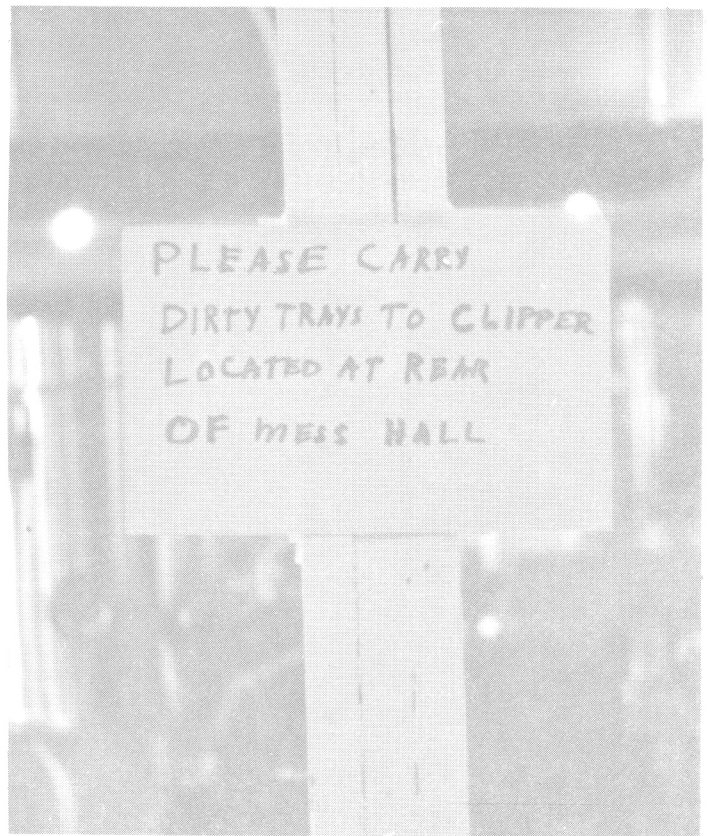 PLEASE CARRY
DIRTY TRAYS TO CLIPPER
LOCATED AT REAR
OF MESS HALL